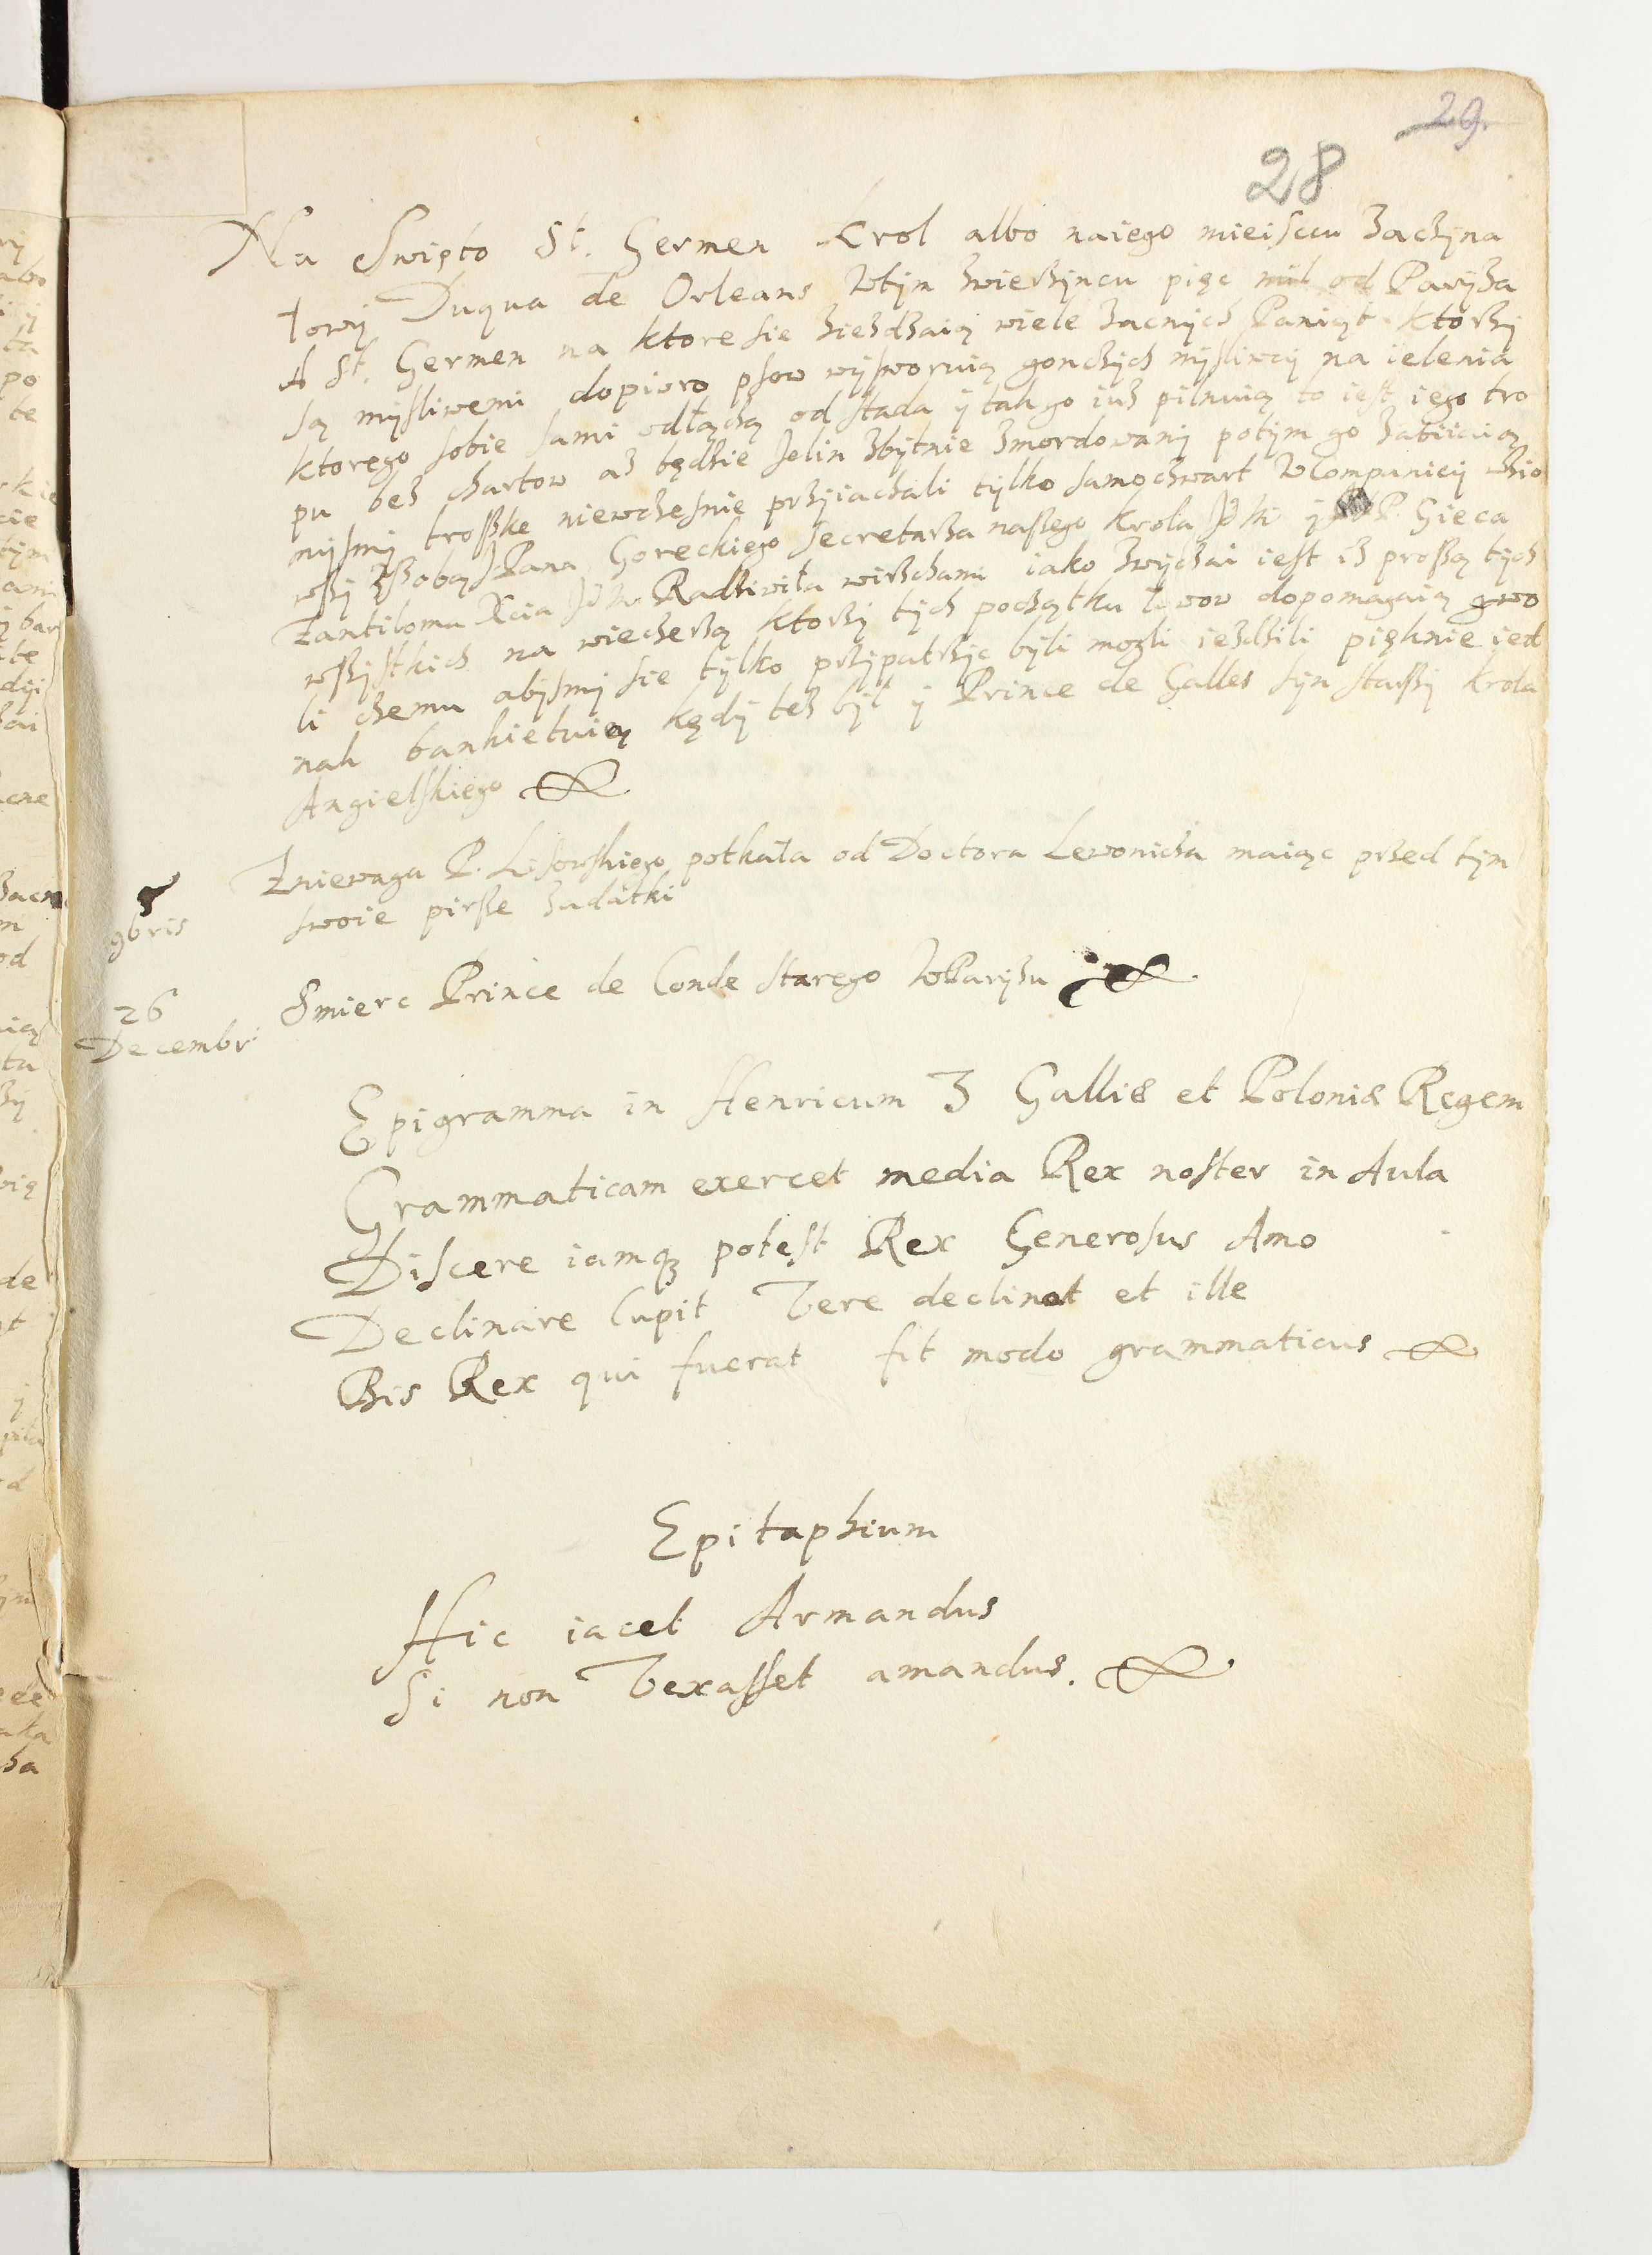 29.
28
Na Swięto St. Germen Krol albo naiego mieiscu zaczyna
łowy Duqua de Orleans wtym zwierzyncu pięc mil od Paryza
A St. Germen na ktore sie ziezdzaią wiele zacnych Paniąt ktorzy
są mysliwemi dopioro psow wysworuią gonczych mysliwcy na ielenia
ktorego sobie sami odłączą od stada y tak go iuz pilnuią to iest iego tro
pu bez chartow az będzie Jelin zbytnie zmordowany potym go zabiiaią
mysmy troszke niewczesnie przyiachali tylko samoczwart w Companiey wzio
wszy zsobą J Pana Goreckiego Secretarza naszego Krola y P. Gieca
Zantiloma Xcia Radziwiła wirzchami iako zwyczai iest iz proszą tych
wszystkich na wieczerzą ktorzy tych początku łowow dopomagaią gwo
li czemu abysmy sie tylko przypatrzyc byli mogli iezdzili pięknie ied
nak bankietuią kędy tez był y Prince de Galles syn starszy Krola
Angielskiego
5
9bris
Zniewaga P. Lisowskiego potkała od Doctora Lewonicza maiąc przed tym
swoie pirsze zadatki
26
Decembr:
Smierc Prince de Conde starego w Paryzu
Epigramma in Henricum 3 Galliæ et Poloniæ Regem
Grammaticam exercet media Rex noster in Aula
Discere iamq₃ potest Rex Generosus Amo
Declinare Cupit Vere declinat et ille
Bis Rex qui fuerat fit modo grammaticus
Epitaphium
Hic iacet Armandus
Si non Vexasset amandus.